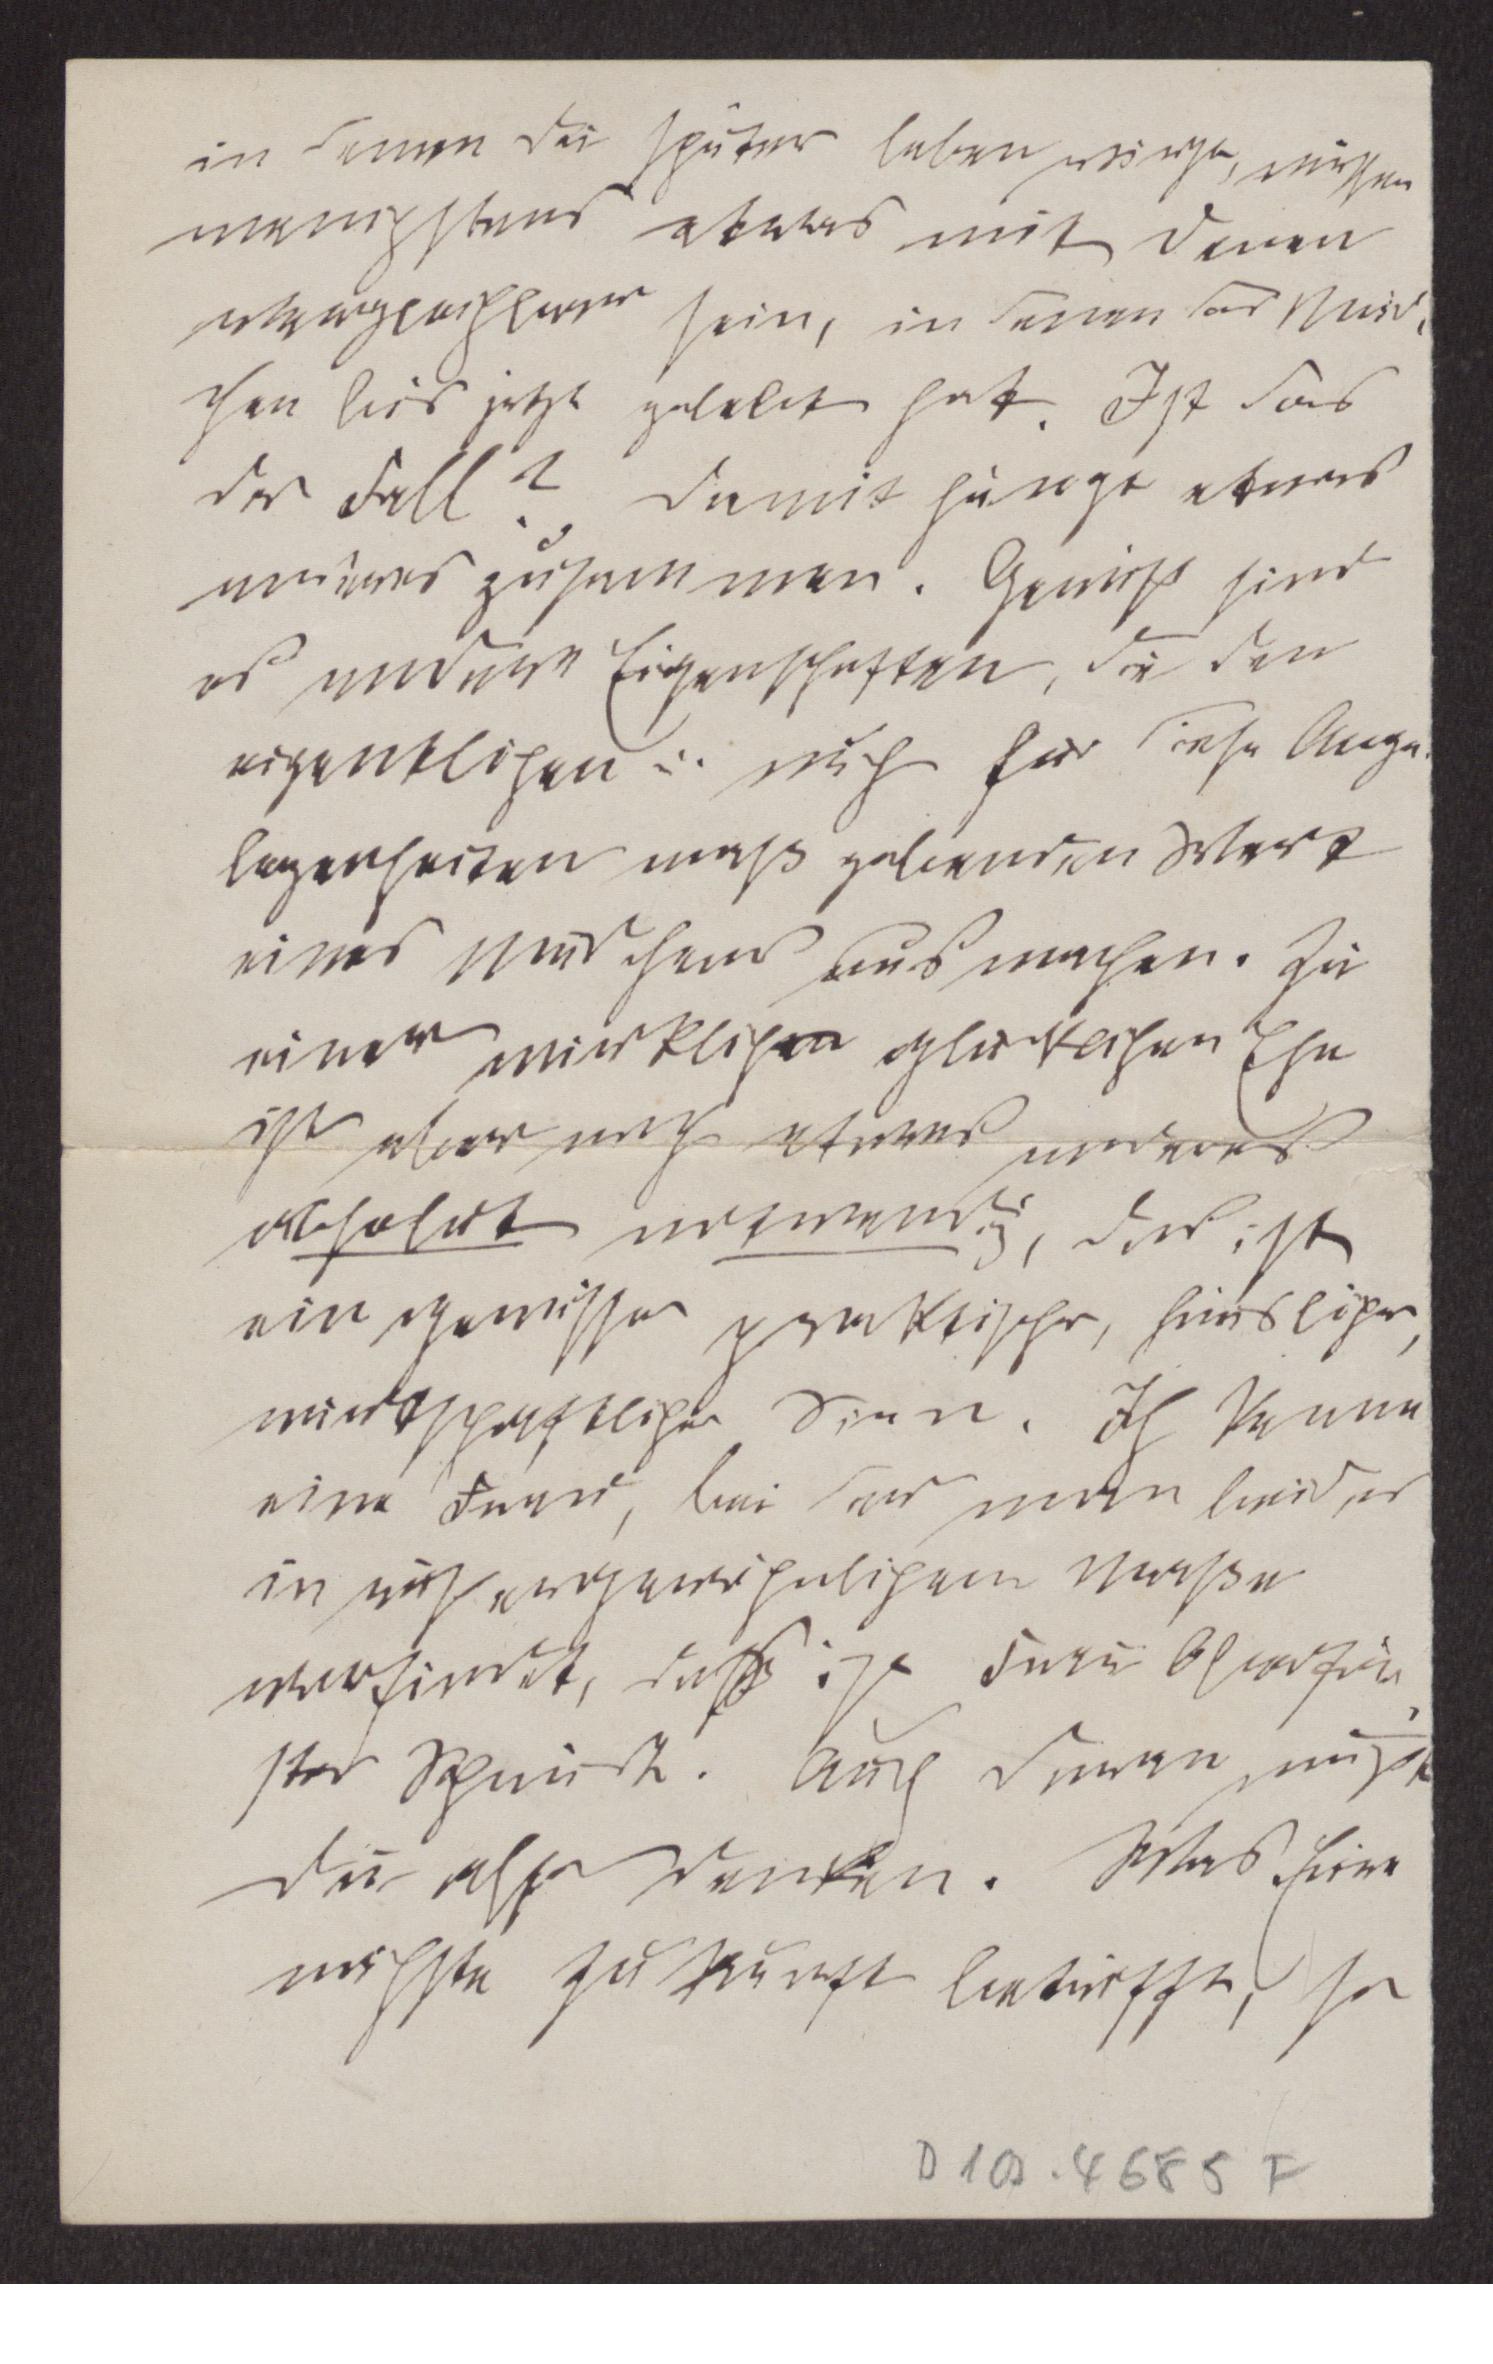 in denen Du später leben wirst, müssen
wenigstens etwas mit denen
vergleichbar sein, in denen das Mäd-
chen bis jetzt gelebt hat. Ist das
der Fall? Damit hängt etwas
anderes zusammen. Gewiß sind
es andere Eigenschaften, die den
eigentlichen u. auch für diese Ange-
legenheiten maß gebenden Wert
eines Mädchens aus machen. Zu
einer wirklichen glücklichen Ehe
ist aber noch etwas anderes
absolut notwendig, das ist
ein gewisser praktischer, häuslicher,
wirtschaftlicher Sinn. Ich kenne
eine Frau, bei der man leider
in außergewöhnlichem Maße
vorfindet, daß ist Frau Oberför-
ster Schmidt. Auch daran mußt
Du also denken. Was Eure
nächste Zukunft betrifft, so
D 10.4685 F